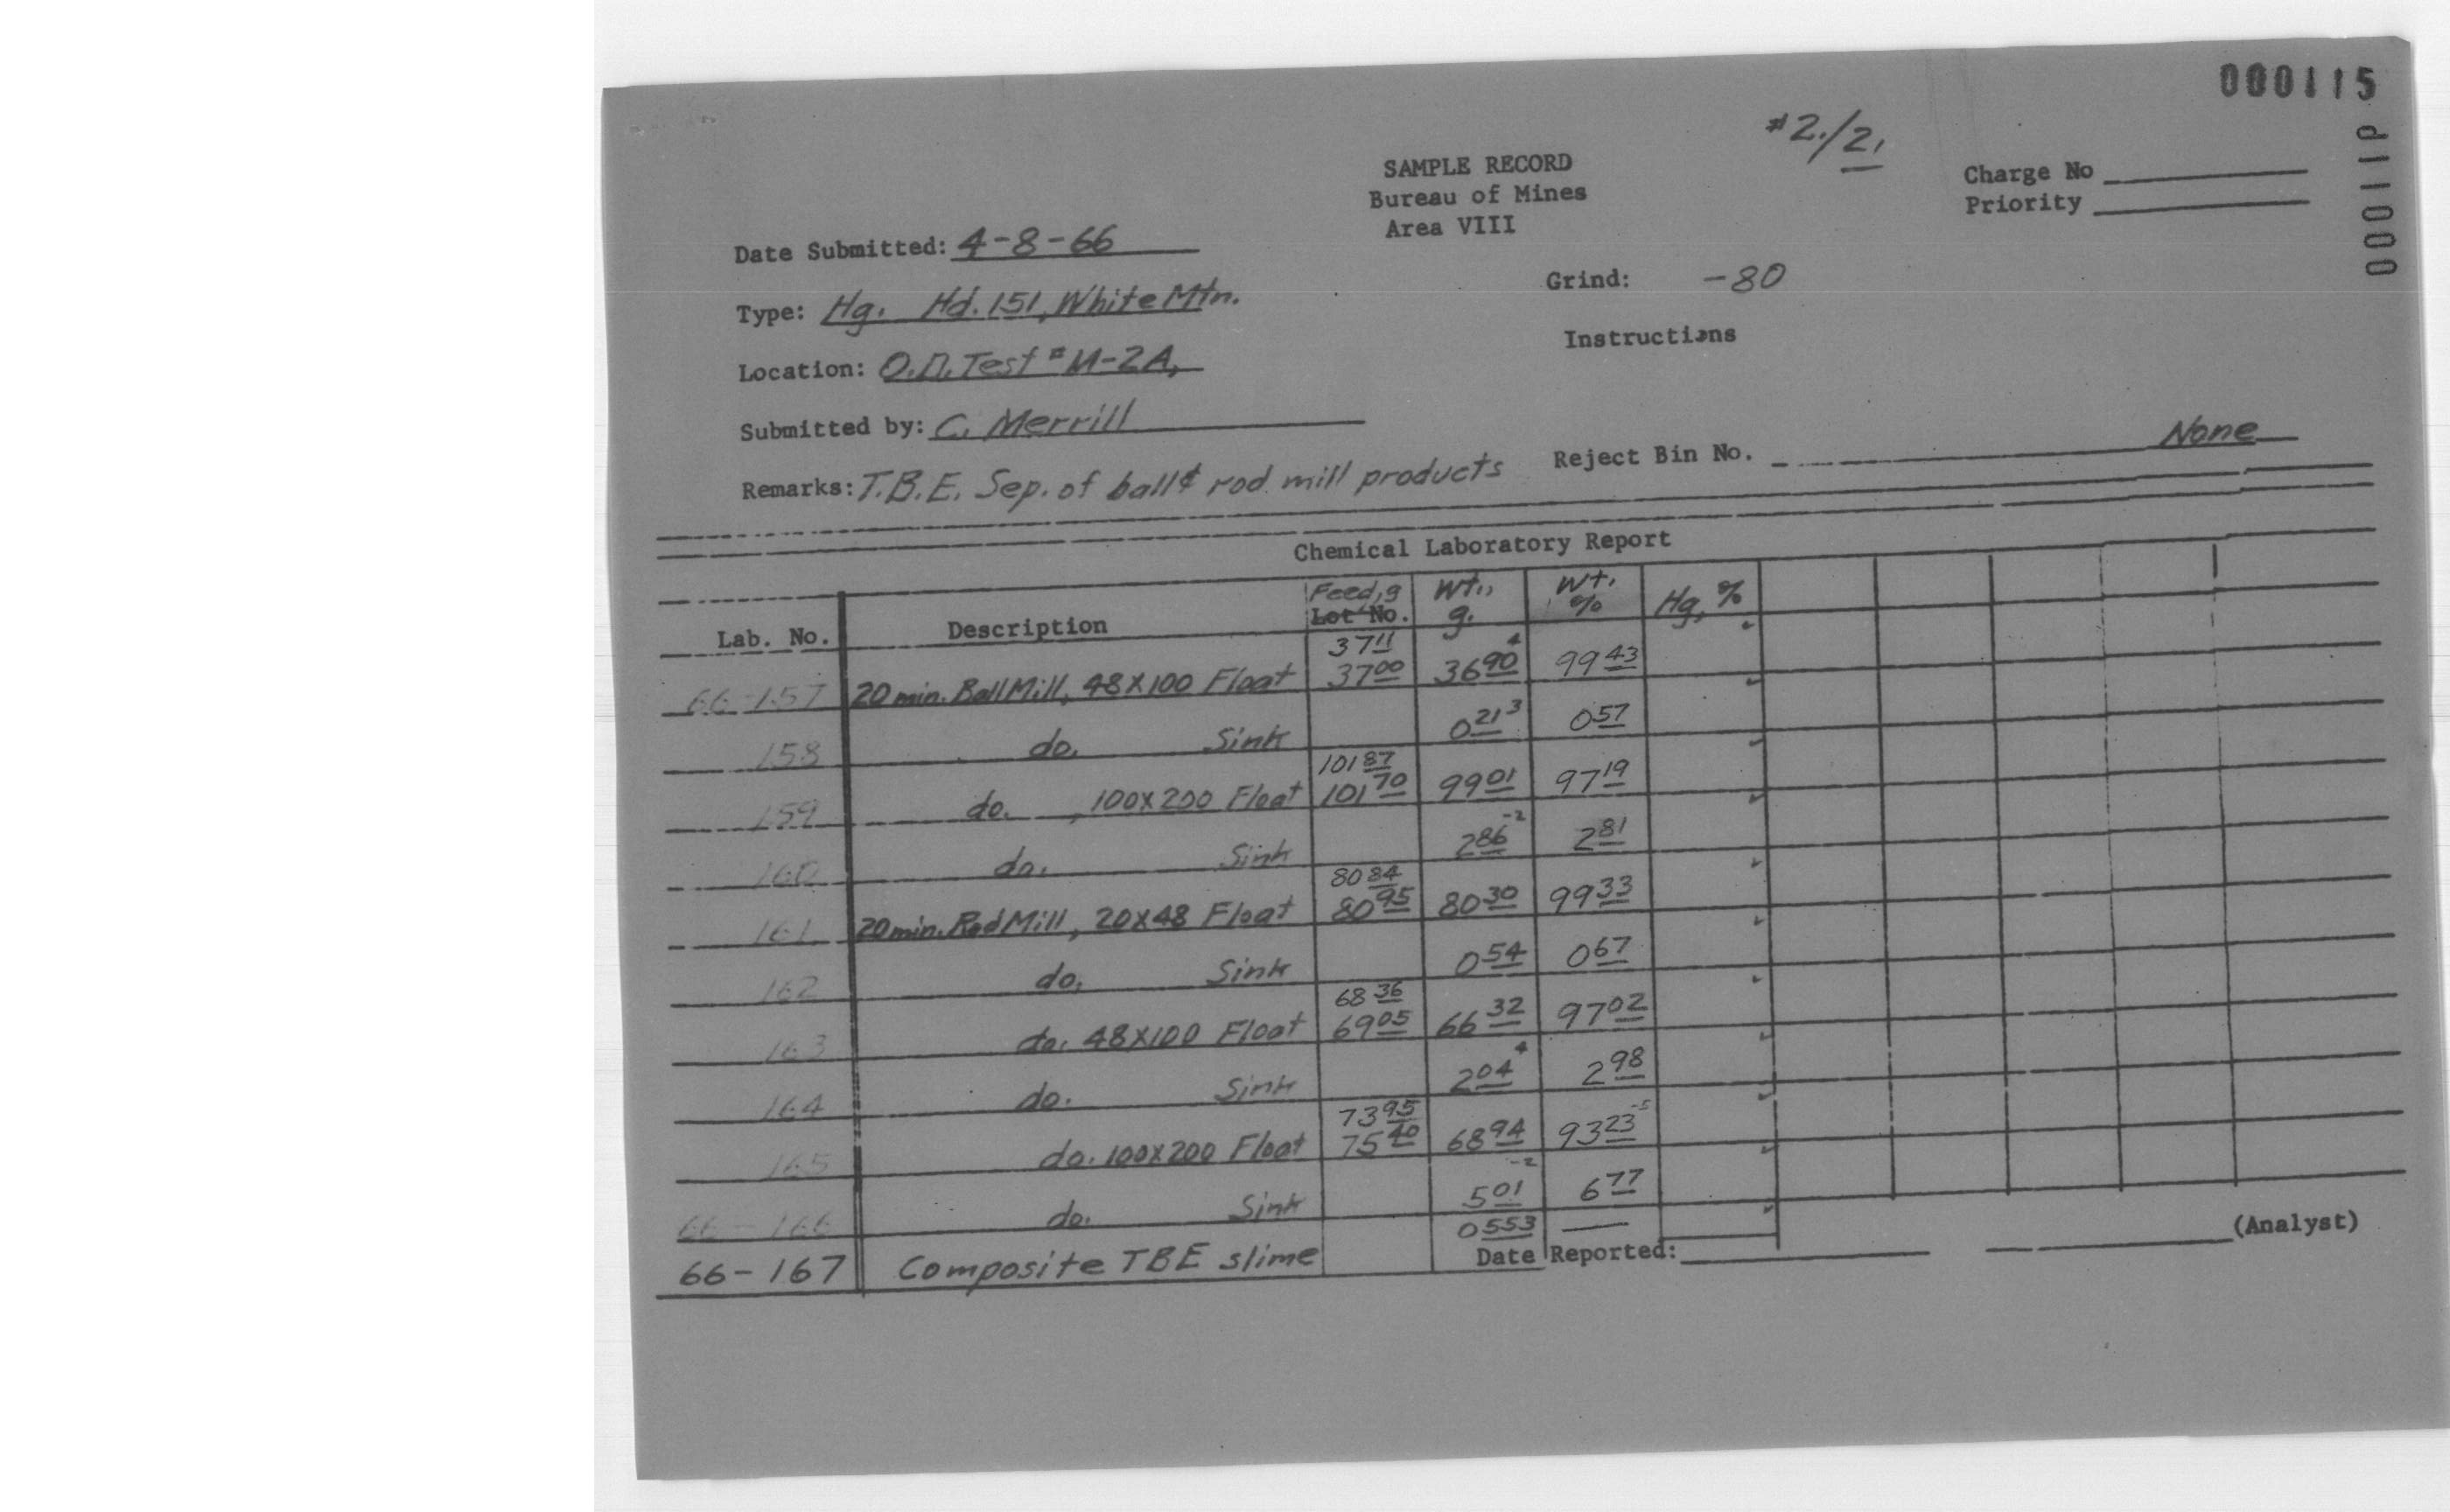 000115
#2./2.
000119
SAMPLE RECORD
Bureau of Mines
Area VIII
Charge No
Priority
Date Submitted: 4-8-66
Grind: -80
Type: Hg. Hd.151, White Mtn.
Instructions
Location: O.D. Test #M-2A,
Submitted by: C. Merrill
Reject Bin No. None
Remarks: T.B.E. Sep. of ball & rod mill products
Chemical Laboratory Report
Lab. No. Description Feed, g Lot No. Wt., g. Wt. % Hg, %
37 11
66-157 20 min. Ball Mill, 48X100 Float 37 00 36 90 4 99 43
158 do. Sink 0 21 3 0 57
101 87
159 do. , 100X200 Float 101 70 99 01 97 19
160 do. Sink 2 86 -2 2 81
80 84
161 20 min. Rod Mill, 20X48 Float 80 95 80 30 99 33
162 do. Sink 0 54 0 67
68 36
163 do. 48X100 Float 69 05 66 32 97 02
164 do. Sink 2 04 4 2 98
73 95
165 do. 100X200 Float 75 40 68 94 93 23 -5
66-166 do. Sink 5 01 -2 6 77
66-167 Composite TBE slime 0 553 —
Date Reported: (Analyst)